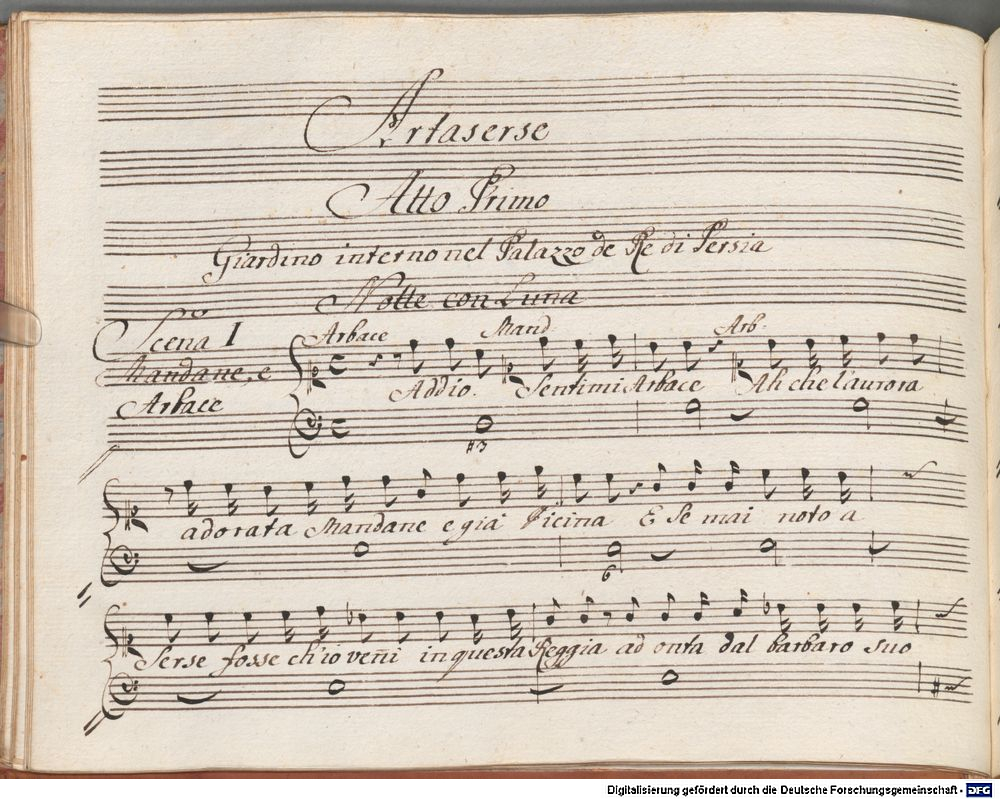 Artaserse
Atto Primo
Giardino interno nel Palazzo de Re di Persia
Notte con Luna
Scena I
Mandane, e
Arbace
Arbace Mand. Arb.
Addio. Sentimi Arbace Ah che l'aurora
#3
adorata Mandane e già Vicina E Se mai noto a
6
Serse fosse ch'io veñi in questa Reggia ad onta dal barbaro suo
Digitalisierung gefördert durch die Deutsche Forschungsgemeinschaft - DFG